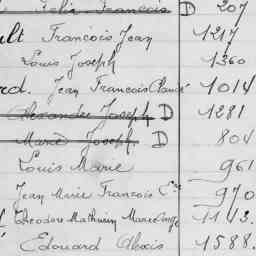 Felix François D 207
ult François Jean 1217
Louis Joseph 1360
rd. Jean François Claude 1014
Alexandre Joseph D 1281
Marie Joseph D 804
Louis Marie 961
Jean Marie François 970
Théodore Mathurin Marie Ange 1113.
Edouard Alexis 1588.